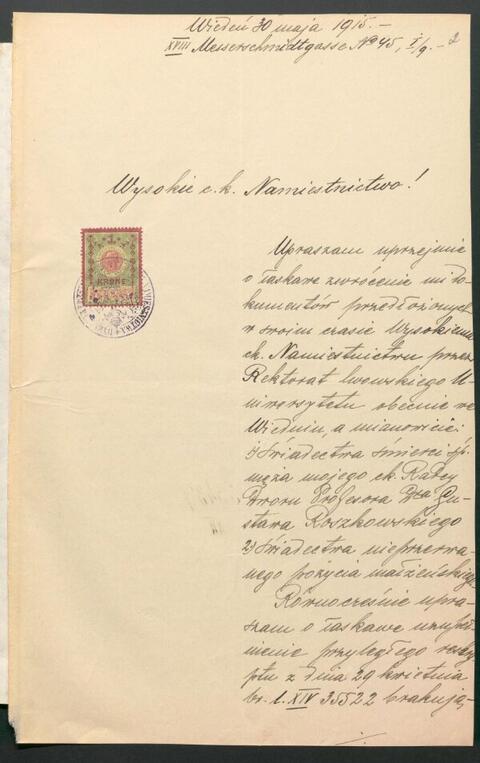 Wiedeń 30 maja 1915.-
XVIII Messerschmidtgasse No 45, I/9.- 2
Wysokie c. k. Namiestnictwo!
KRONE
Upraszam uprzejmie
o łaskawe zwrócenie mi do-
kumentów przedłożonych
w swoim czasie Wysokiemu
ck. Namiestnictwu przez
Rektorat lwowskiego U-
niwersytetu obecnie we
Wiedniu, a mianowicie:
1) Świadectwa śmierci śp.
męża mojego ck. Radcy
Dworu Profesora Dra Gu-
stawa Roszkowskiego
2) Świadectwa nieprzerwa-
nego pożycia małżeńskiego
Równocześnie upra-
szam o łaskawe uzupeł-
nienie przyległego reskry-
ptu z dnia 29 kwietnia
br. l. XIV 35522 brakują,-